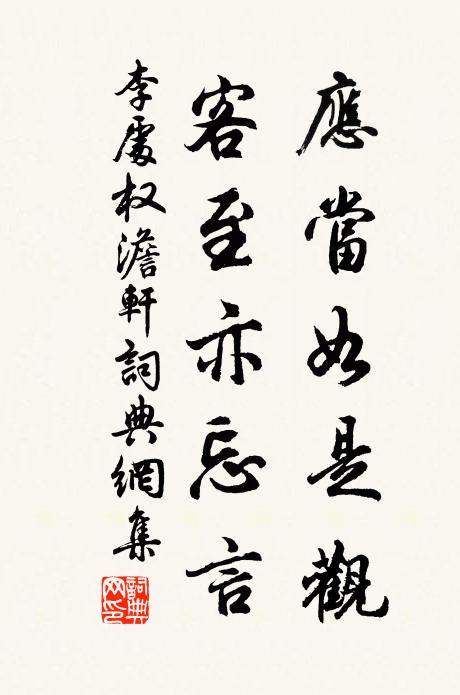 應當如是觀
客至亦忘言
李處权澹軒詞典網集
詞典網印